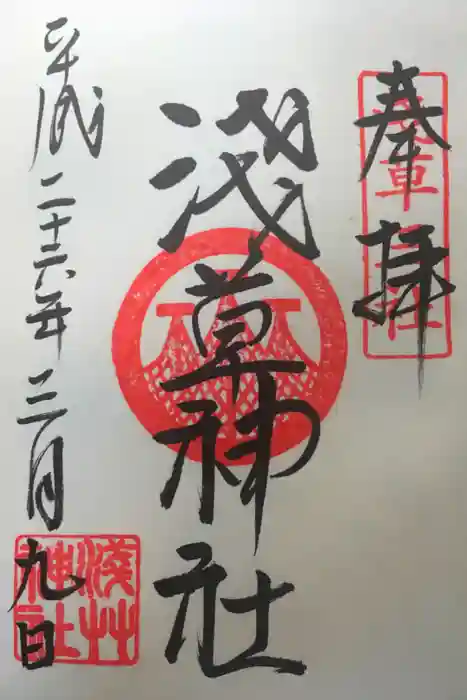 奉拝
淺草神社
平成二十六年三月九日
淺草
神社